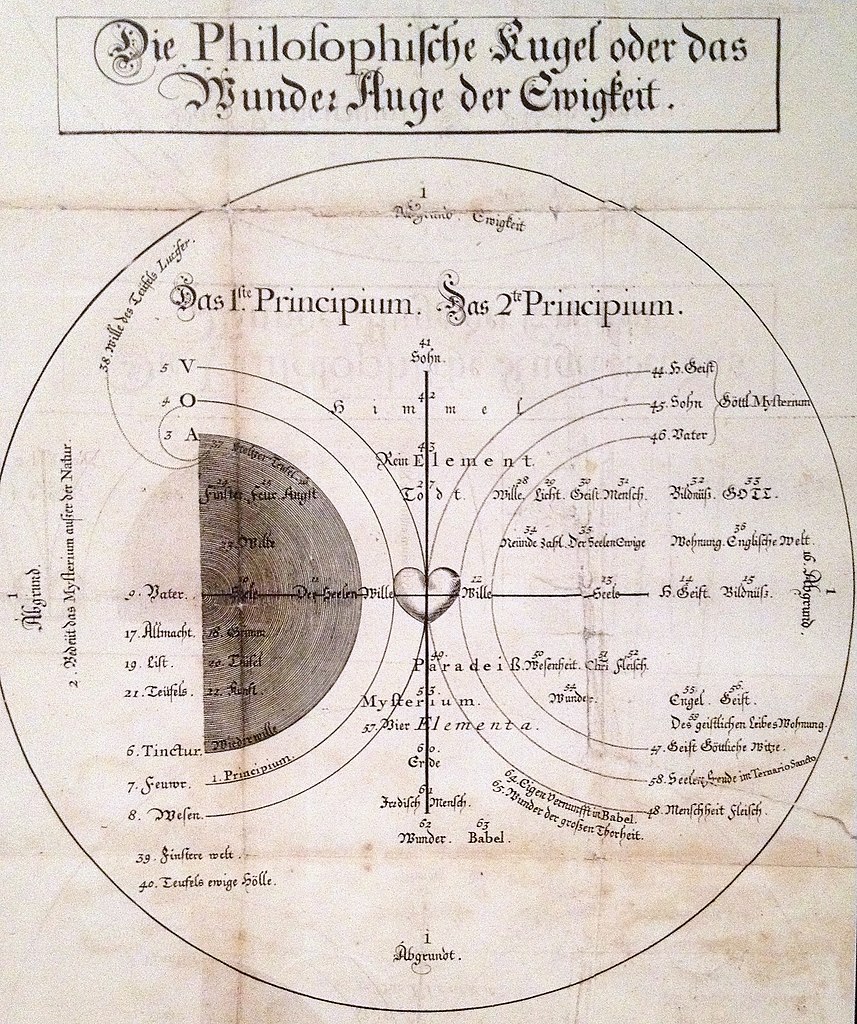 Die Philosophische Kugel oder das
Wunder Auge der Ewigkeit.
1
Abgrund. Ewigkeit
38. Wille des Teüfels Lucifer.
Das 1.ste Principium. Das 2te Principium.
41
Sohn.
5 V
4 O
3 A
42
Himmel
43
Rein Element.
44. H. Geist
45. Sohn
46. Vater
Göttl. Mysterium
37. Teüfel
27
Todt.
28 29 30 31 32 33
Wille. Licht. Geist Mensch. Bildnüß. GOTT.
Finster Feur Angst
34 35 36
Neünde Zahl. Der Seelen Ewige Wohnung. Englische Welt.
Wille
1
Abgrund.
2. Bedeut das Mysterium außer der Natur.
10 11 12 13 14 15
9. Vater. Seele Der Seelen Wille Wille Seele H. Geist. Bildnüß.
16. Abgrund.
1
17. Allmacht. 18. Grimm
19. List. 20. Teüfel
21. Teüfels. 22. Kunst.
49 50 51 52
Paradeiß. Wesenheit. Chri Fleisch.
53
Mysterium.
54
Wunder.
55 56
Engel. Geist.
57. Vier Elementa.
Des geistlichen Leibes Wohnung.
Wiederwille
6. Tinctur.
60.
Erde
47. Geist Göttliche Witze.
1. Principium.
7. Feuwr.
58. Seelen Ende im Ternario Sancto
61
Irrdisch Mensch.
64. Eigen Vernunfft in Babel.
65. Wunder der großen Thorheit.
8. Wesen.
48. Menschheit Fleisch.
62 63
Wunder. Babel.
39. Finstere welt.
40. Teufels ewige Hölle.
1
Abgrundt.